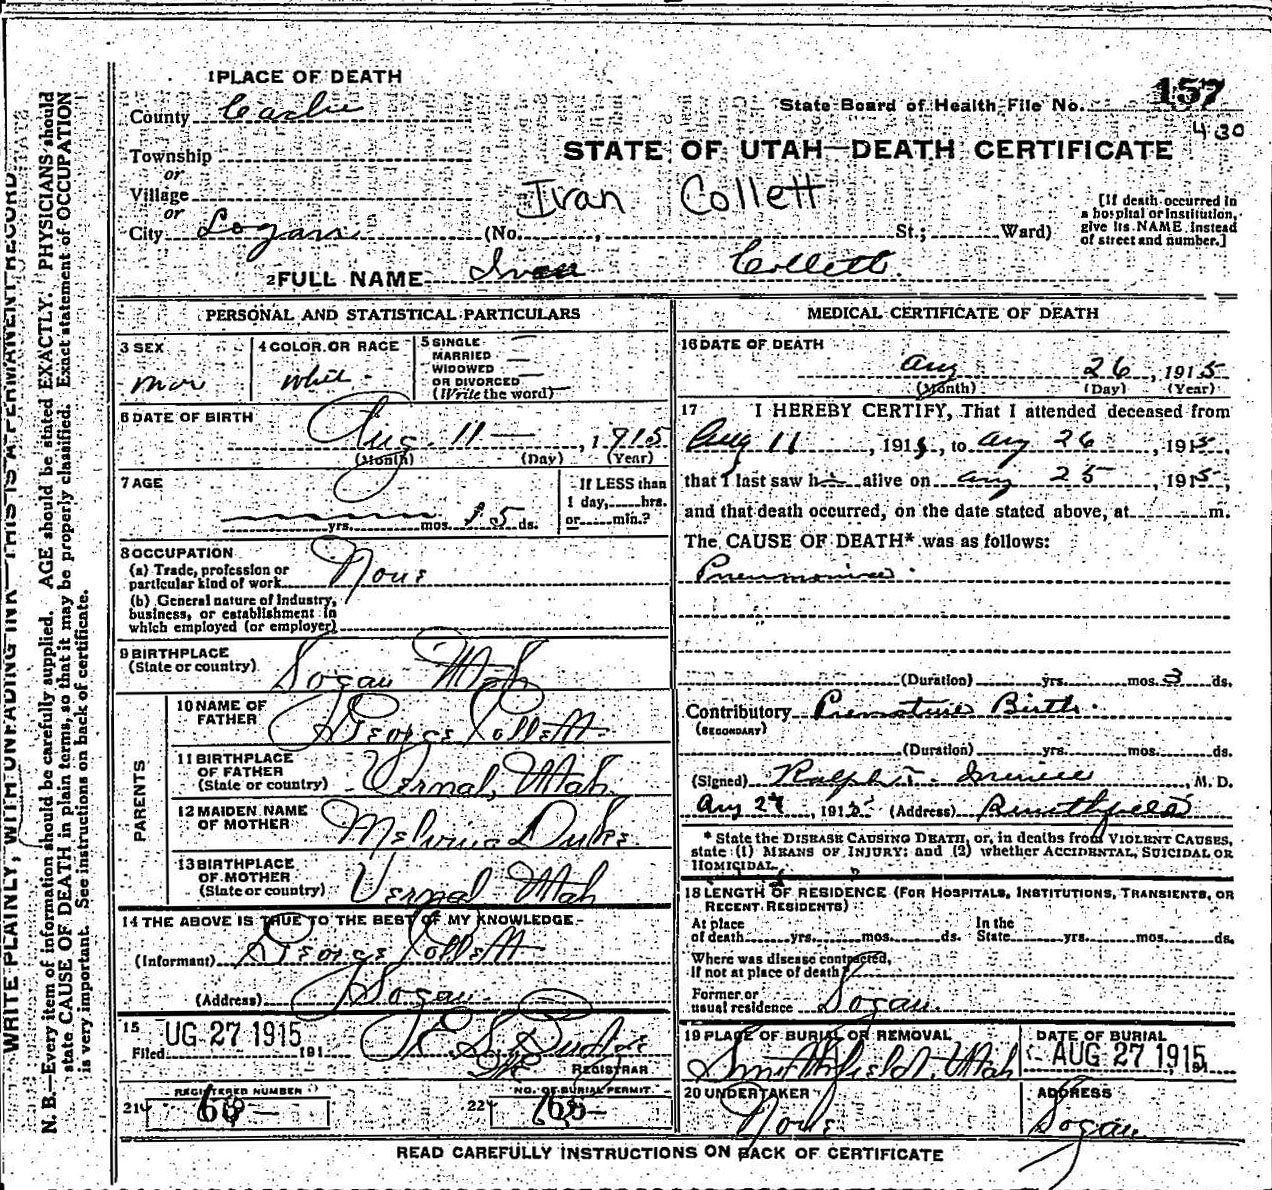 WRITE PLAINLY, WITH UNFADING INK—THIS IS A PERMANENT RECORD
N. B.—Every item of information should be carefully supplied. AGE should be stated EXACTLY. PHYSICIANS should
state CAUSE OF DEATH in plain terms, so that it may be properly classified. Exact statement of OCCUPATION
is very important. See instructions on back of certificate.
1 PLACE OF DEATH
County Cache
State Board of Health File No. 157
430
Township
or
Village
or
City Logan (No. , St.; Ward)
STATE OF UTAH—DEATH CERTIFICATE
Ivan Collett
[If death occurred in
a hospital or institution,
give its NAME instead
of street and number.]
2 FULL NAME Ivan Collett.
PERSONAL AND STATISTICAL PARTICULARS
3 SEX
4 COLOR OR RACE
White
5 SINGLE
MARRIED
WIDOWED
OR DIVORCED
(Write the word)
6 DATE OF BIRTH
Aug. 11— , 1915
(Month) (Day) (Year)
7 AGE
yrs. mos. 15 ds.
If LESS than
1 day, hrs.
or min.?
8 OCCUPATION
(a) Trade, profession or
particular kind of work None
(b) General nature of Industry,
business, or establishment in
which employed (or employer)
9 BIRTHPLACE
(State or country) Logan Utah
PARENTS
10 NAME OF
FATHER George Collett
11 BIRTHPLACE
OF FATHER
(State or country) Vernal, Utah
12 MAIDEN NAME
OF MOTHER Melvina Duke
13 BIRTHPLACE
OF MOTHER
(State or country) Vernal Utah
14 THE ABOVE IS TRUE TO THE BEST OF MY KNOWLEDGE
(Informant) George Collett
(Address) Logan
15
Filed UG 27 1915 191
REGISTRAR
REGISTERED NUMBER
21
NO. OF BURIAL PERMIT
22
MEDICAL CERTIFICATE OF DEATH
16 DATE OF DEATH
Aug 26 , 1915
(Month) (Day) (Year)
17 I HEREBY CERTIFY, That I attended deceased from
Aug 11 , 1915, to Aug 26 , 1915,
that I last saw h alive on Aug 25 , 1915,
and that death occurred, on the date stated above, at m.
The CAUSE OF DEATH* was as follows:
Pneumonia.
(Duration) yrs. mos. 3 ds.
Contributory Premature Birth.
(SECONDARY)
(Duration) yrs. mos. ds.
(Signed) Ralph T. , M. D.
Aug 27 1915 (Address) Smithfield
* State the DISEASE CAUSING DEATH, or, in deaths from VIOLENT CAUSES,
state (1) MEANS OF INJURY; and (2) whether ACCIDENTAL, SUICIDAL OR
HOMICIDAL.
18 LENGTH OF RESIDENCE (FOR HOSPITALS, INSTITUTIONS, TRANSIENTS, OR
RECENT RESIDENTS)
At place
of death yrs. mos. ds.
In the
State yrs. mos. ds.
Where was disease contracted,
If not at place of death?
Former or
usual residence Logan.
19 PLACE OF BURIAL OR REMOVAL
Smithfield, Utah
DATE OF BURIAL
AUG 27 1915
191
20 UNDERTAKER
None
ADDRESS
Logan
READ CAREFULLY INSTRUCTIONS ON BACK OF CERTIFICATE